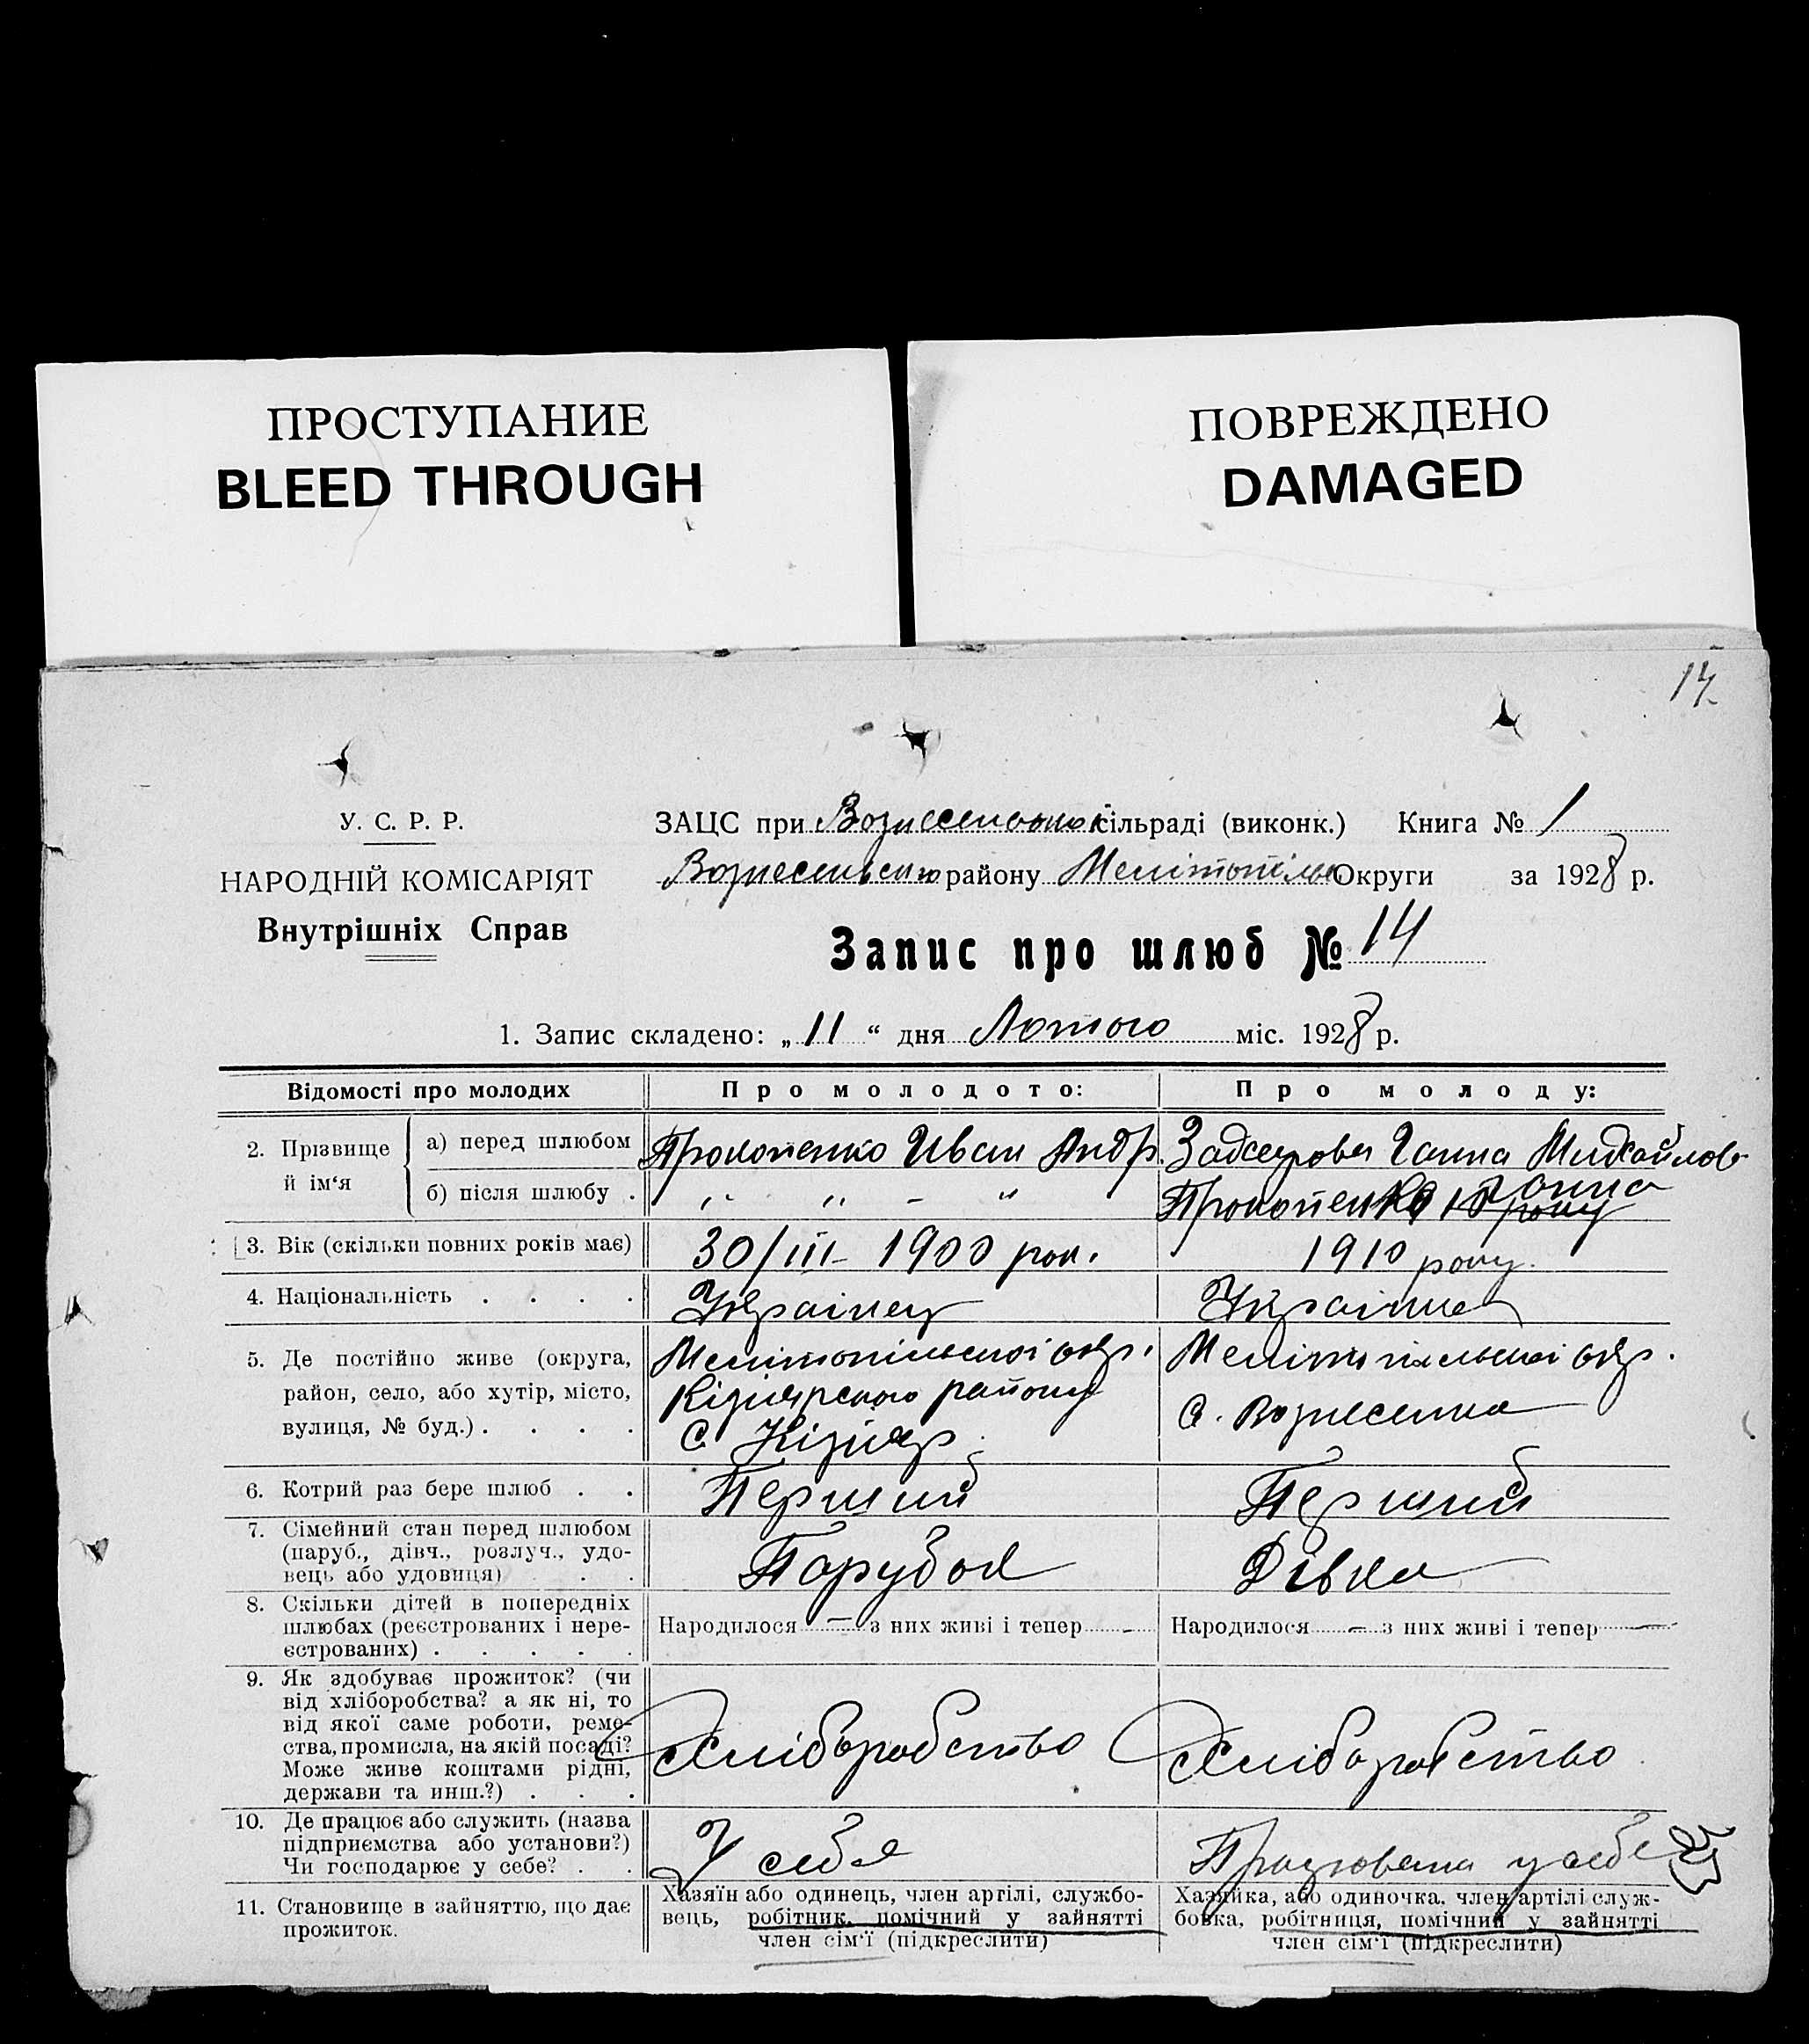 ПРОСТУПАНИЕ
BLEED THROUGH
ПОВРЕЖДЕНО
DAMAGED
14
У. С. Р. Р.
НАРОДНІЙ КОМІСАРІЯТ
Внутрішніх Справ
ЗАЦС при Вознесенською сільраді (виконк.) Книга № 1
Вознесенського району Мелітопільс Округи за 1928 р.
Запис про шлюб № 14
1. Запис складено: „ 11 “ дня Лютого міс. 1928 р.
Відомості про молодих
Про молодого:
Про молоду:
2. Прізвище й ім‘я
а) перед шлюбом
Прокопенко Иван Андр.
Ганна Михайлов
б) після шлюбу .
" " - "
Прокопенко Ганна
3. Вік (скільки повних років має)
30/III - 1900 рок.
1910 року.
4. Національність . . . .
Українец
Українка
5. Де постійно живе (округа,
район, село, або хутір, місто,
вулиця, № буд.) . . . .
Мелітопільської окр.
Кізіярского району
С. Кізіяр.
Мелітопільської окр.
С. Вознесенка
6. Котрий раз бере шлюб . .
Перший
Перший
7. Сімейний стан перед шлюбом
(паруб., дівч., розлуч., удо-
вець або удовиця) . .
Парубок
Дівка
8. Скільки дітей в попередніх
шлюбах (реєстрованих і нере-
єстрованих) . . . . .
Народилося — з них живі і тепер -
Народилося — з них живі і тепер —
9. Як здобуває прожиток? (чи
від хліборобства? а як ні, то
від якої саме роботи, реме-
ства, промисла, на якій посаді?
Може живе коштами рідні,
держави та инш.?) . . .
Хліборобство
Хліборобство
10. Де працює або служить (назва
підприємства або установи?)
Чи господарює у себе? . .
У себя
у себе
11. Становище в зайняттю, що дає
прожиток.
Хазяїн або одинець, член артілі, службо-
вець, робітник, помічний у зайнятті
член сім‘ї (підкреслити)
Хазяйка, або одиночка, член артілі служ-
бовка, робітниця, помічний у зайнятті
член сім‘ї (підкреслити)